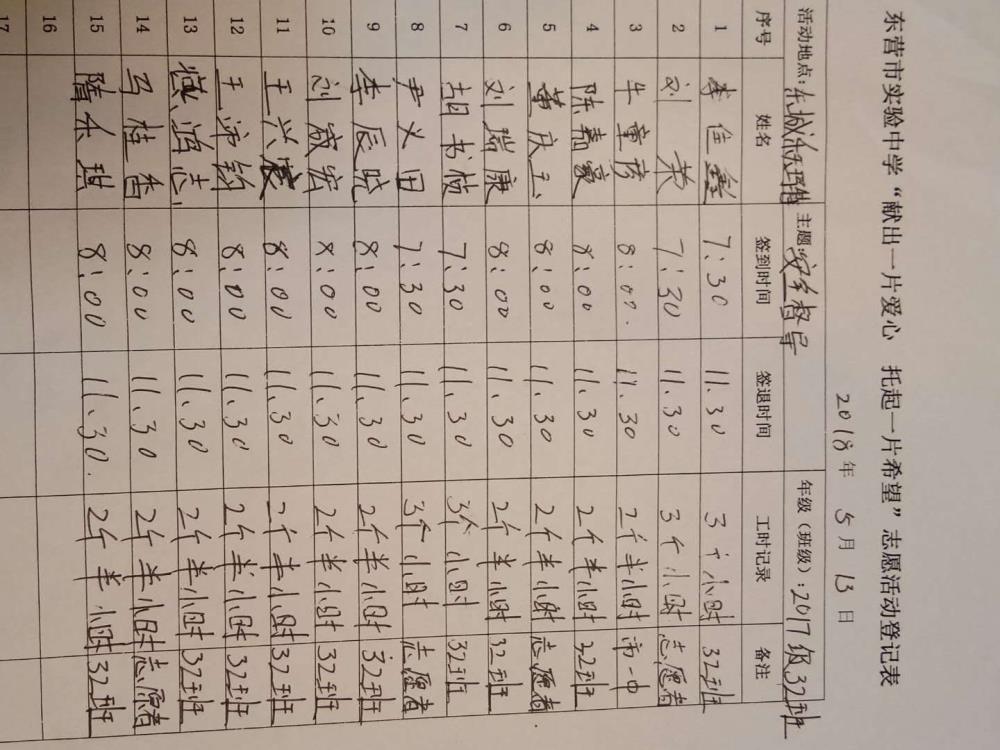 东营市实验中学“献出一片爱心 托起一片希望”志愿活动登记表
2018年 5月 13日
活动地点:东城 主题:安全督导 年级(班级):2017级32班
序号 姓名 签到时间 签退时间 工时记录 备注
1 李佳鑫 7:30 11.30 3个小时 32班
2 刘荣 7:30 11.30 3个小时 志愿者
3 牛童彦 8:00. 11.30 2个半小时 市一中
4 陈春豪 8:00 11.30 2个半小时 32班
5 黄庆玉 8:00 11.30 2个半小时 志愿者
6 刘瑞康 8:00 11.30 2个半小时 32班
7 胡书枝 7:30 11.30 3个小时 32班
8 尹义田 7:30 11.30 3个小时 志愿者
9 李辰晓 8:00 11.30 2个半小时 32班
10 刘宬宏 8:00 11.30 2个半小时 32班
11 王兴 8:00 11.30 2个半小时 32班
12 王沛钧 8:00 11.30 2个半小时 32班
13 志 8:00 11.30 2个半小时 32班
14 马桂香 8:00 11.30 2个半小时 志愿者
15 隋永琪 8:00 11.30. 2个半小时 32班
16
17